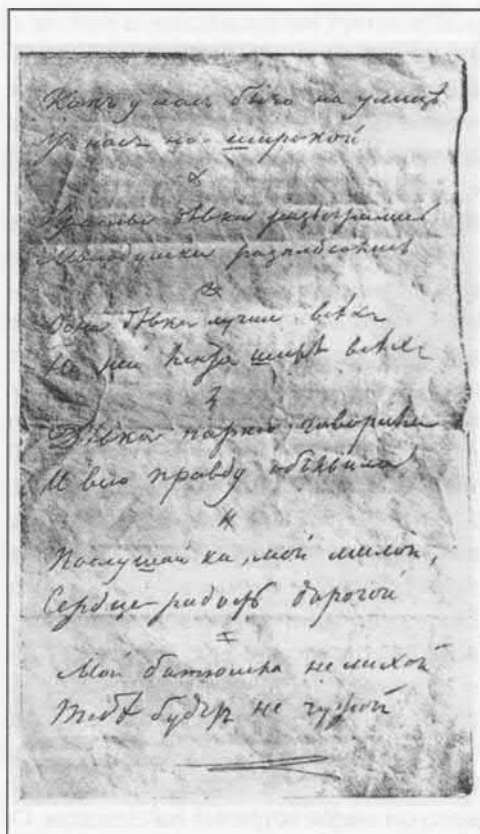 Какъ у насъ было на улицѣ
У насъ на широкой
Красны дѣвки разыгрались
Молодушки расплясались
Одна дѣвка лучше всѣхъ
На ней лента шире всѣхъ
Дѣвка парню говорила
И всю правду объявила
Послушай ка, мой милой,
Сердце-радость дорогой
Мой батюшка не лихой
Тебѣ будетъ не чужой